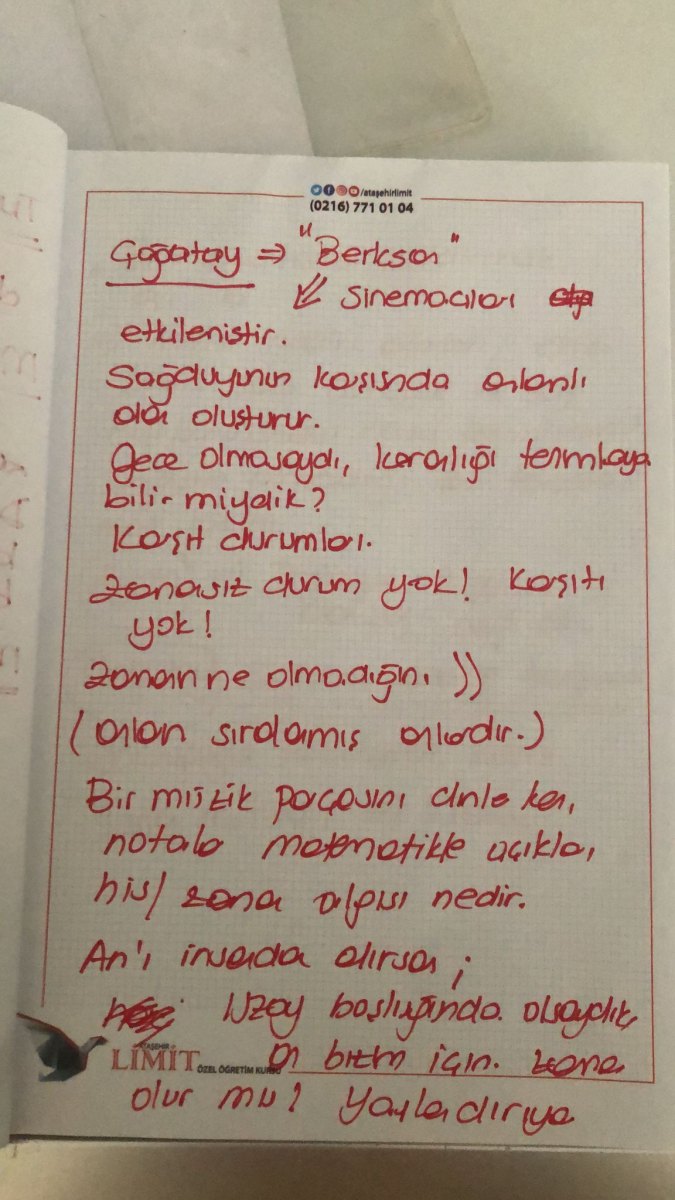 /ataşehirlimit
(0216) 771 01 04
Çağatay ⇒ "Berkson"
Sinemacıları
etkileniştir.
Sağduyunun karşısında anlamlı
olanı oluşturur.
Gece olmasaydı, karanlığı tanımlaya
bilir miydik?
Karşıt durumları.
zamansız durum yok! Karşıtı
yok!
zamanın ne olmadığını ))
(anların sıralanmış anlardır.)
Bir müzik parçasını dinlerken,
notalar matematikle açıklar,
his/ zaman algısı nedir.
An'ı insanda alırsa;
Uzay boşluğunda olsaydık,
o bizim için zaman
ATAŞEHİR
LİMİT ÖZEL ÖĞRETİM KURSU
olur mu?